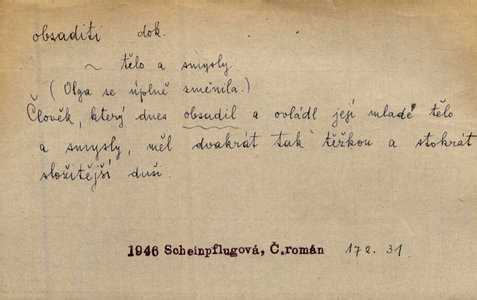 obsaditi dok.
~ tělo a smysly
(Olga se úplně změnila.)
Člověk, který dnes obsadil a ovládl její mladé tělo
a smysly, měl dvakrát tak těžkou a stokrát
složitější duši.
1946 Scheinpflugová, Č.román 172. 31